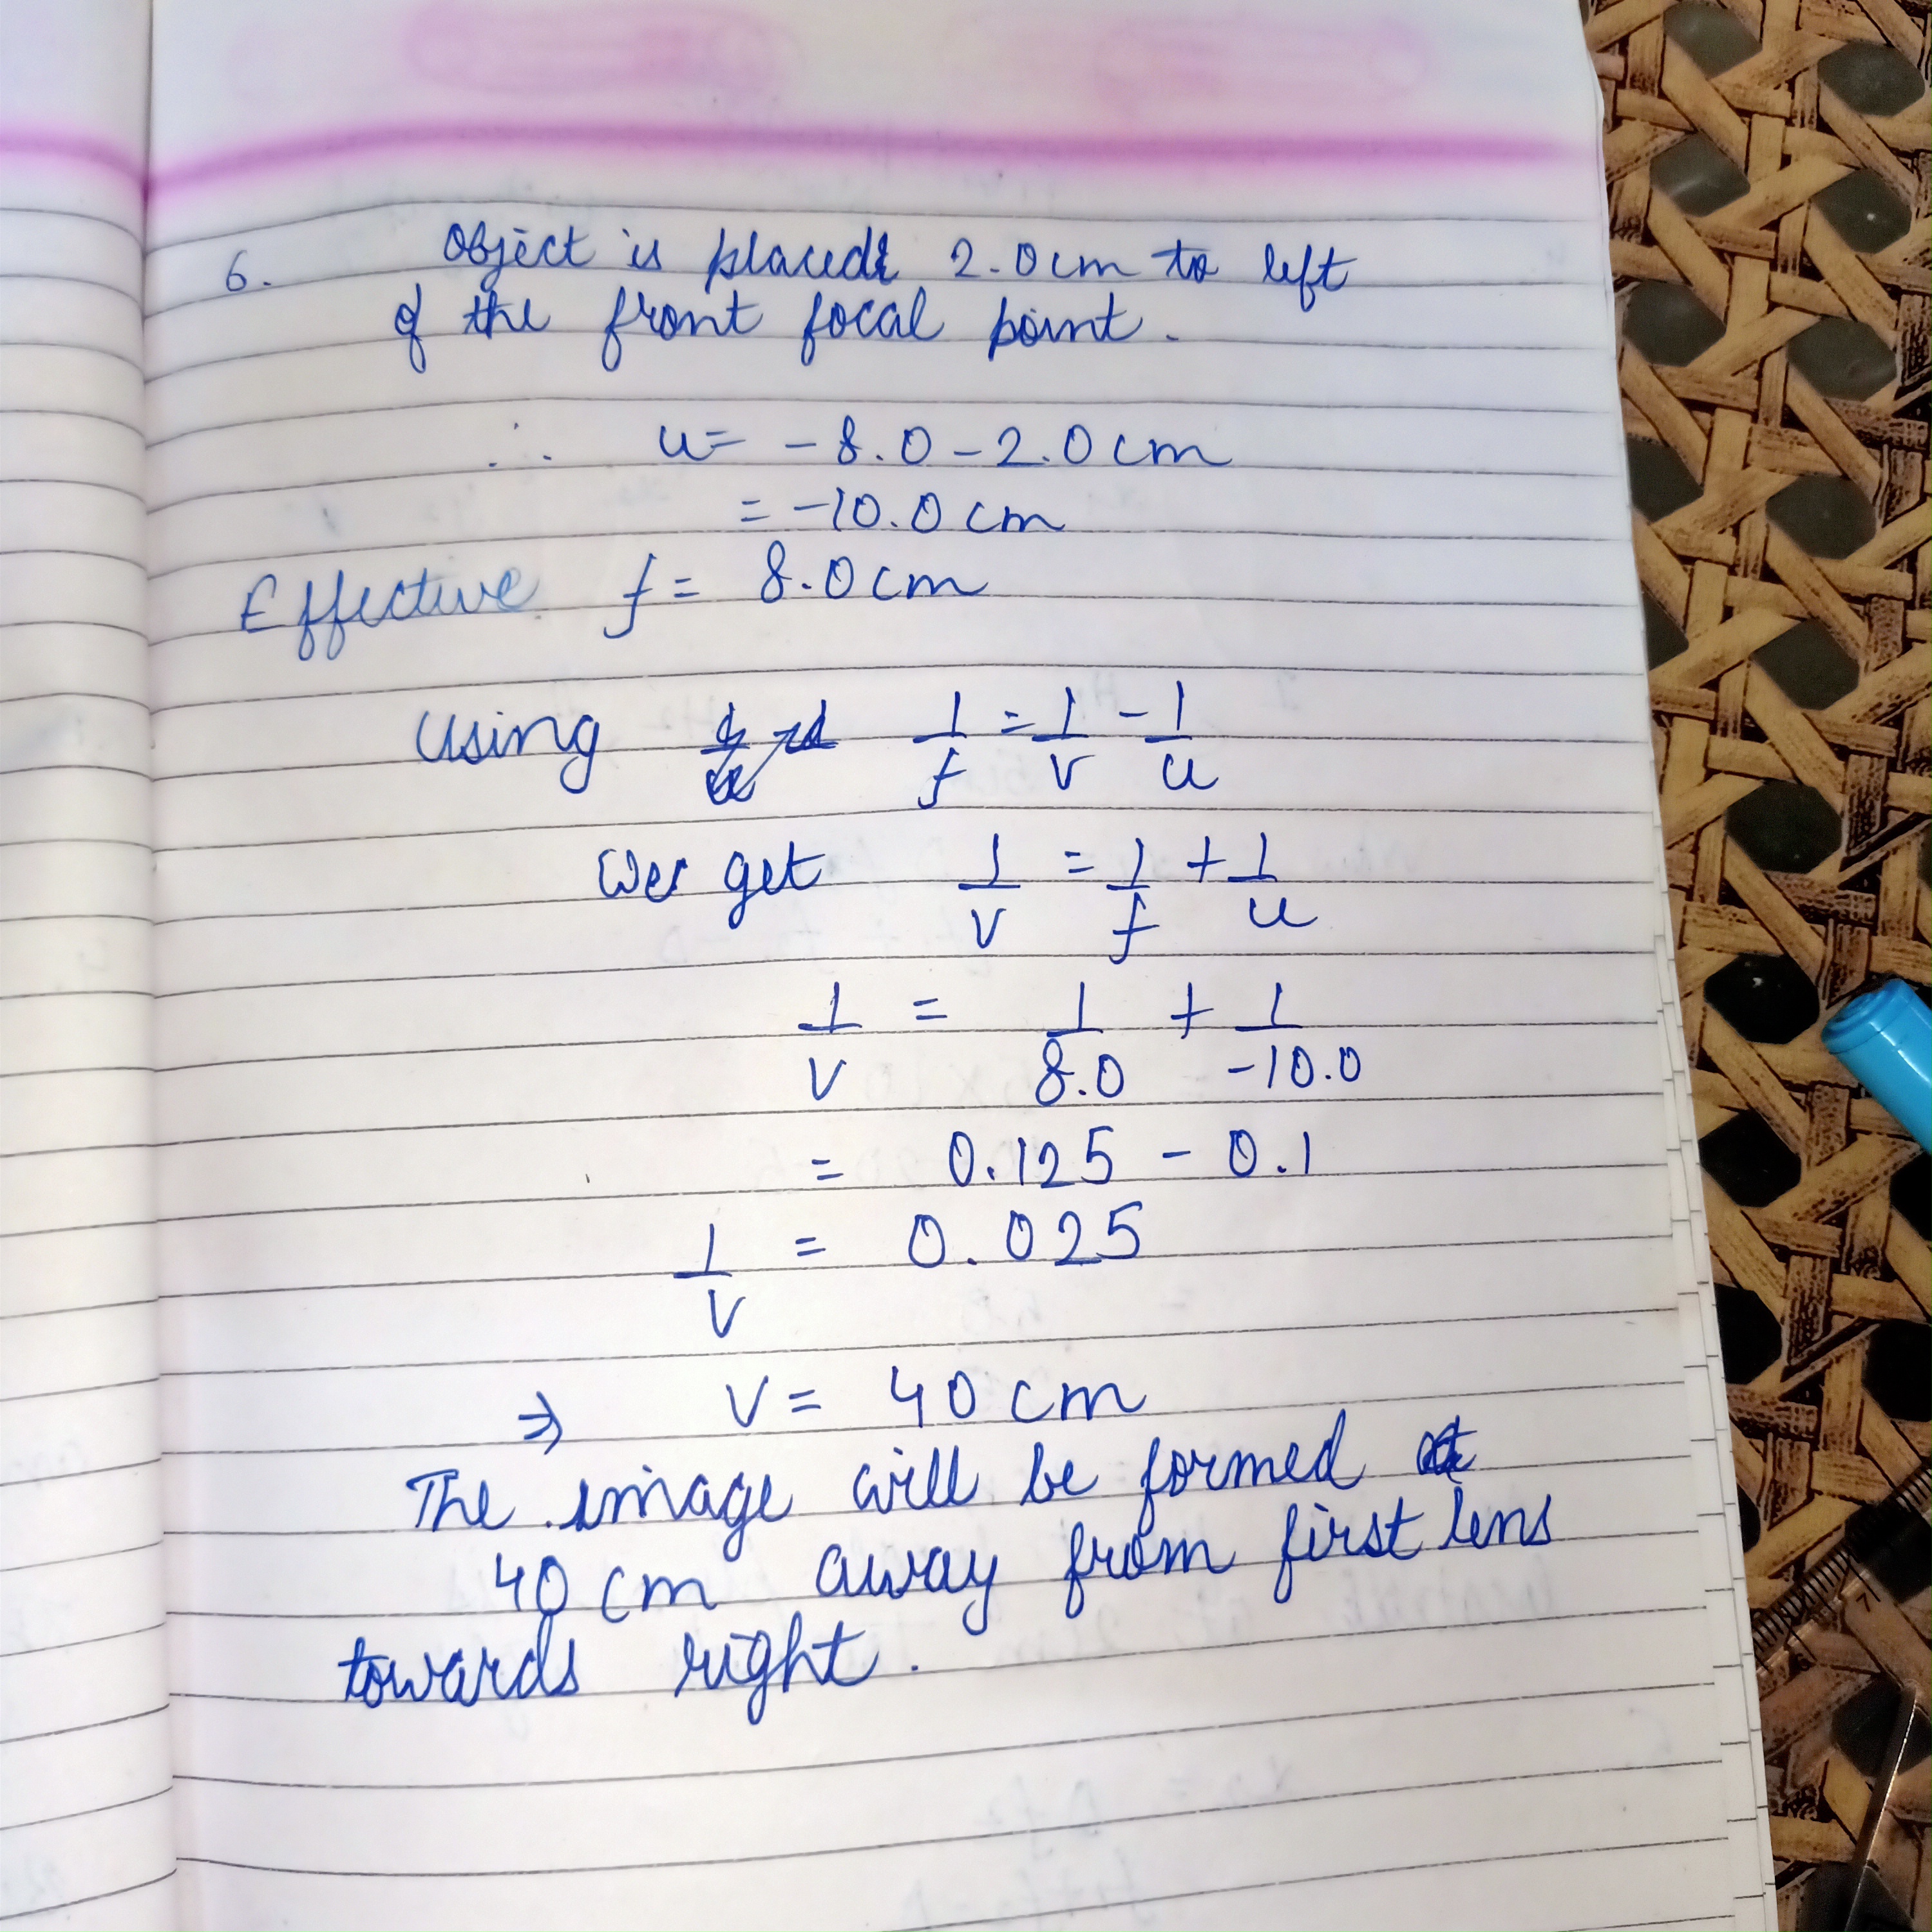 6. Object is placed 2.0cm to left
of the front focal point.
∴ u = - 8.0 - 2.0 cm
= -10.0 cm
Effective f = 8.0 cm
Using 1/f = 1/v - 1/u
We get 1/v = 1/f + 1/u
1/v = 1/8.0 + 1/-10.0
= 0.125 - 0.1
1/v = 0.025
⇒ v = 40 cm
The image will be formed at
40 cm away from first lens
towards right.